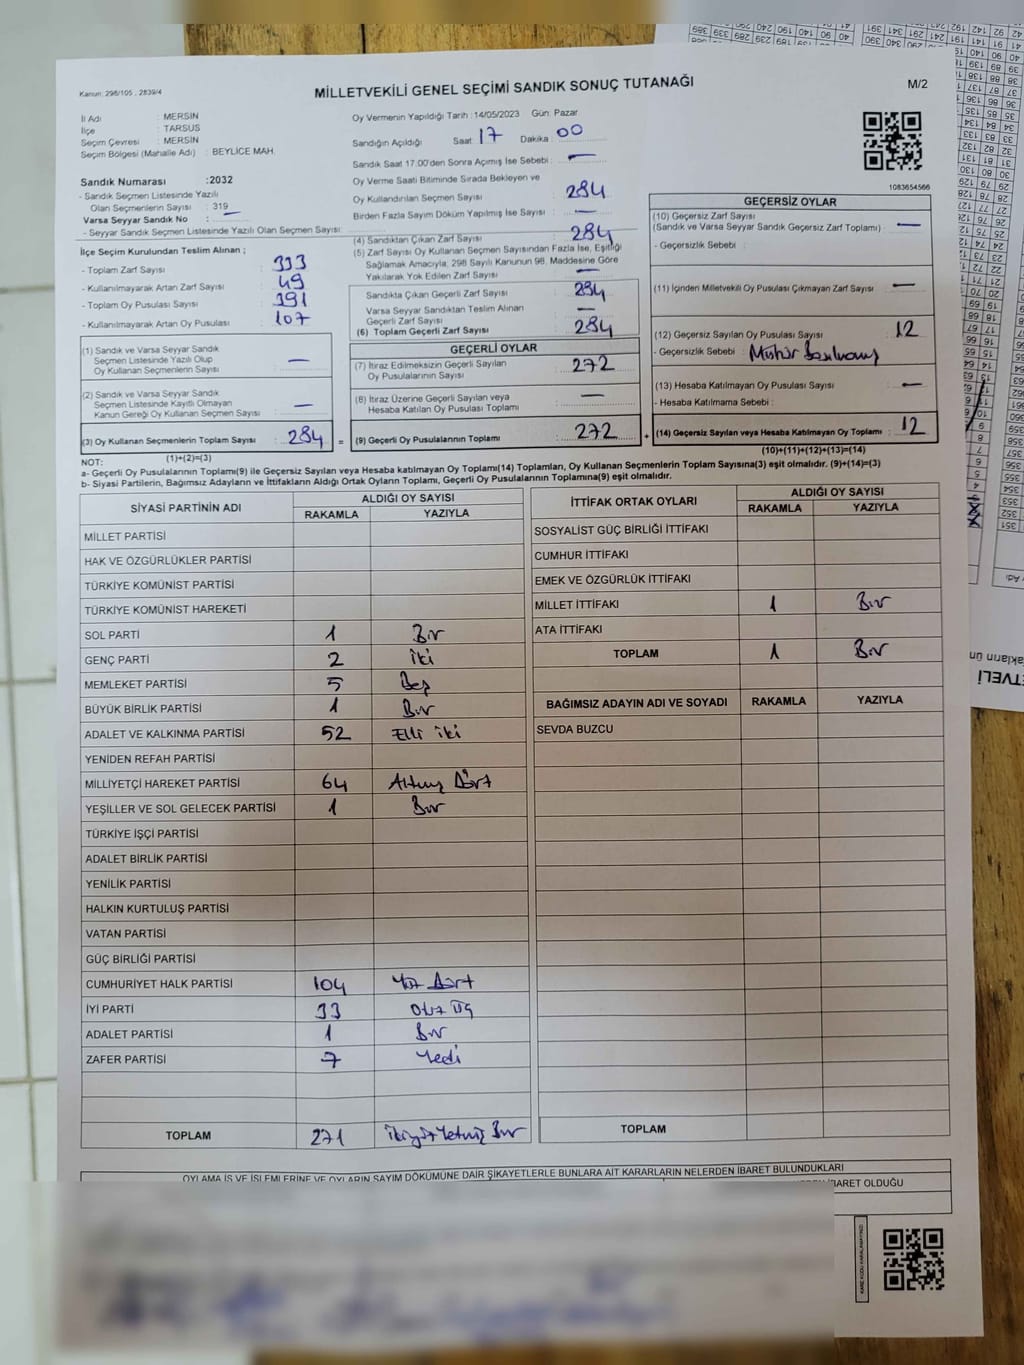 Kanun: 298/105 , 2839/4
MİLLETVEKİLİ GENEL SEÇİMİ SANDIK SONUÇ TUTANAĞI
M/2
İl Adı : MERSİN
İlçe : TARSUS
Seçim Çevresi : MERSİN
Seçim Bölgesi (Mahalle Adı) : BEYLİCE MAH.
Sandık Numarası :2032
- Sandık Seçmen Listesinde Yazılı
Olan Seçmenlerin Sayısı : 319
Varsa Seyyar Sandık No : —
- Seyyar Sandık Seçmen Listesinde Yazılı Olan Seçmen Sayısı:
İlçe Seçim Kurulundan Teslim Alınan ;
- Toplam Zarf Sayısı : 333
- Kullanılmayarak Artan Zarf Sayısı : 49
- Toplam Oy Pusulası Sayısı : 391
- Kullanılmayarak Artan Oy Pusulası : 107
(1) Sandık ve Varsa Seyyar Sandık
Seçmen Listesinde Yazılı Olup
Oy Kullanan Seçmenlerin Sayısı : —
(2) Sandık ve Varsa Seyyar Sandık
Seçmen Listesinde Kayıtlı Olmayan
Kanun Gereği Oy Kullanan Seçmen Sayısı : —
(3) Oy Kullanan Seçmenlerin Toplam Sayısı : 284 =
(1)+(2)=(3)
Oy Vermenin Yapıldığı Tarih :14/05/2023 Gün: Pazar
Sandığın Açıldığı Saat : 17 Dakika : 00
Sandık Saat 17:00'den Sonra Açımış İse Sebebi : —
Oy Verme Saati Bitiminde Sırada Bekleyen ve
Oy Kullandırılan Seçmen Sayısı : 284
Birden Fazla Sayım Döküm Yapılmış İse Sayısı : —
(4) Sandıktan Çıkan Zarf Sayısı : 284
(5) Zarf Sayısı Oy Kullanan Seçmen Sayısından Fazla İse, Eşitliği
Sağlamak Amacıyla, 298 Sayılı Kanunun 98. Maddesine Göre
Yakılarak Yok Edilen Zarf Sayısı : —
Sandıkta Çıkan Geçerli Zarf Sayısı : 284
Varsa Seyyar Sandıktan Teslim Alınan
Geçerli Zarf Sayısı : —
(6) Toplam Geçerli Zarf Sayısı : 284
GEÇERLİ OYLAR
(7) İtiraz Edilmeksizin Geçerli Sayılan
Oy Pusulalarının Sayısı : 272
(8) İtiraz Üzerine Geçerli Sayılan veya
Hesaba Katılan Oy Pusulası Toplamı : —
(9) Geçerli Oy Pusulalarının Toplamı : 272 +
1083654566
GEÇERSİZ OYLAR
(10) Geçersiz Zarf Sayısı
(Sandık ve Varsa Seyyar Sandık Geçersiz Zarf Toplamı) : —
- Geçersizlik Sebebi :
(11) İçinden Milletvekili Oy Pusulası Çıkmayan Zarf Sayısı : —
(12) Geçersiz Sayılan Oy Pusulası Sayısı : 12
- Geçersizlik Sebebi :
(13) Hesaba Katılmayan Oy Pusulası Sayısı : —
- Hesaba Katılmama Sebebi :
(14) Geçersiz Sayılan veya Hesaba Katılmayan Oy Toplamı : 12
(10)+(11)+(12)+(13)=(14)
NOT:
a- Geçerli Oy Pusulasının Toplamı(9) ile Geçersiz Sayılan veya Hesaba katılmayan Oy Toplamı(14) Toplamları, Oy Kullanan Seçmenlerin Toplam Sayısına(3) eşit olmalıdır. (9)+(14)=(3)
b- Siyasi Partilerin, Bağımsız Adayların ve İttifakların Aldığı Ortak Oyların Toplamı, Geçerli Oy Pusulalarının Toplamına(9) eşit olmalıdır.
SİYASİ PARTİNİN ADI
ALDIĞI OY SAYISI
RAKAMLA YAZIYLA
MİLLET PARTİSİ
HAK VE ÖZGÜRLÜKLER PARTİSİ
TÜRKİYE KOMÜNİST PARTİSİ
TÜRKİYE KOMÜNİST HAREKETİ
SOL PARTİ 1 Bir
GENÇ PARTİ 2 iki
MEMLEKET PARTİSİ 5 Beş
BÜYÜK BİRLİK PARTİSİ 1 Bir
ADALET VE KALKINMA PARTİSİ 52 Elli iki
YENİDEN REFAH PARTİSİ
MİLLİYETÇİ HAREKET PARTİSİ 64 Altmış Dört
YEŞİLLER VE SOL GELECEK PARTİSİ 1 Bir
TÜRKİYE İŞÇİ PARTİSİ
ADALET BİRLİK PARTİSİ
YENİLİK PARTİSİ
HALKIN KURTULUŞ PARTİSİ
VATAN PARTİSİ
GÜÇ BİRLİĞİ PARTİSİ
CUMHURİYET HALK PARTİSİ 104 Yüz Dört
İYİ PARTİ 33 Otuz Üç
ADALET PARTİSİ 1 Bir
ZAFER PARTİSİ 7 Yedi
TOPLAM 271 ikiyüz Yetmiş Bir
İTTİFAK ORTAK OYLARI
ALDIĞI OY SAYISI
RAKAMLA YAZIYLA
SOSYALİST GÜÇ BİRLİĞİ İTTİFAKI
CUMHUR İTTİFAKI
EMEK VE ÖZGÜRLÜK İTTİFAKI
MİLLET İTTİFAKI 1 Bir
ATA İTTİFAKI
TOPLAM 1 Bir
BAĞIMSIZ ADAYIN ADI VE SOYADI RAKAMLA YAZIYLA
SEVDA BUZCU
TOPLAM
OYLAMA İŞ VE İŞLEMLERİNE VE OYLARIN SAYIM DÖKÜMÜNE DAİR ŞİKAYETLERLE BUNLARA AİT KARARLARIN NELERDEN İBARET BULUNDUKLARI
İBARET OLDUĞU